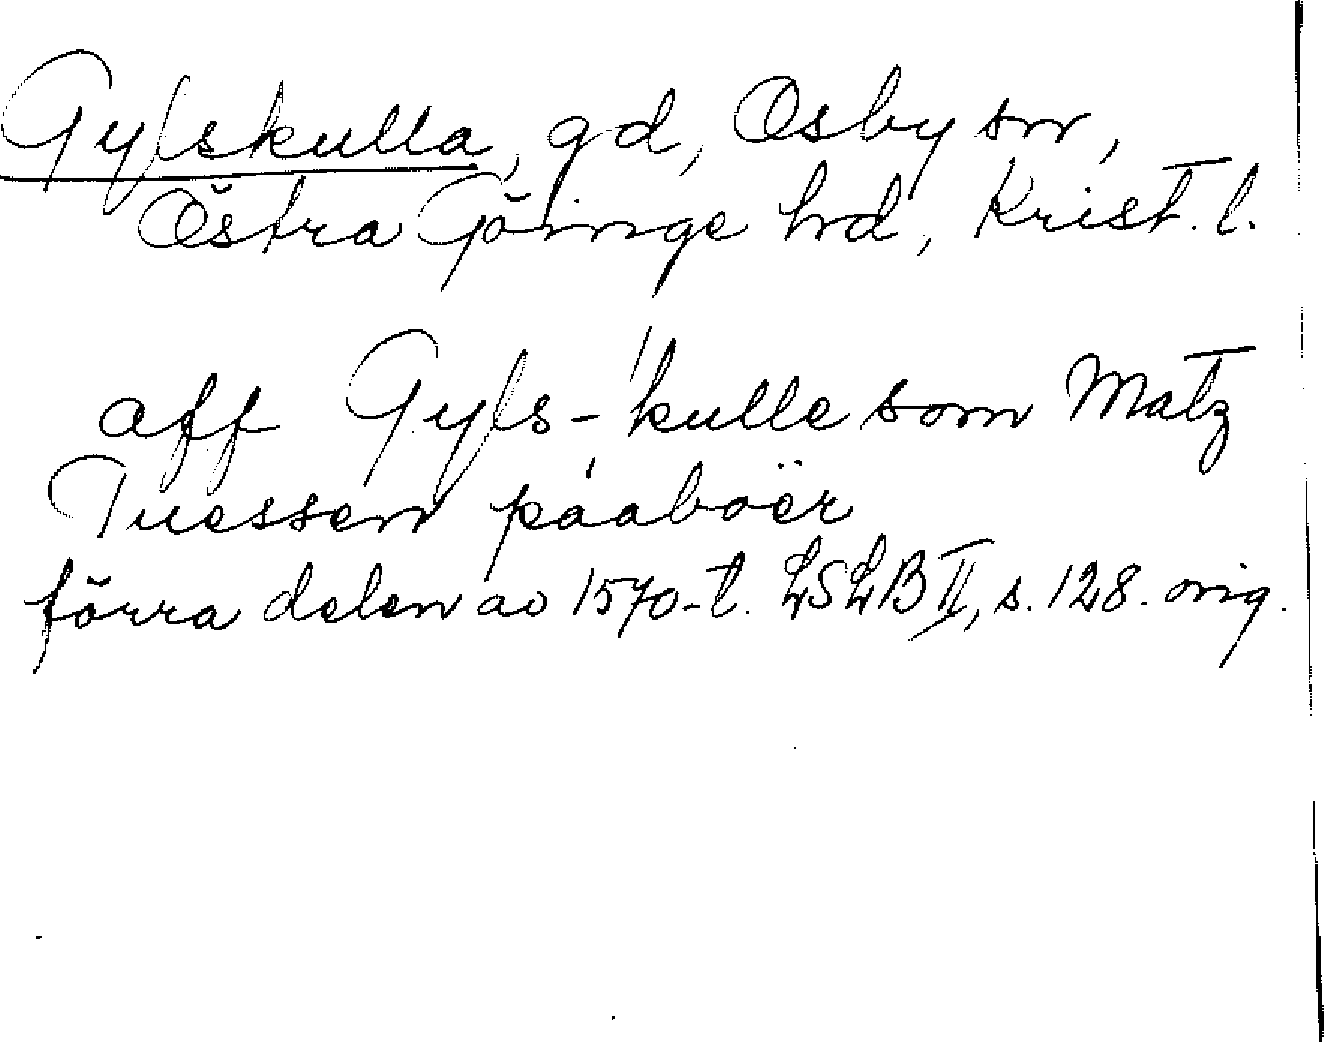 Gylskulla, gd, Osby sn,
Östra Göinge hrd, Krist. l.
aff Gyls-kulle som Matz
Tuessen paaboër
förra delen av 1570-t. LSLB II, s. 128. orig.